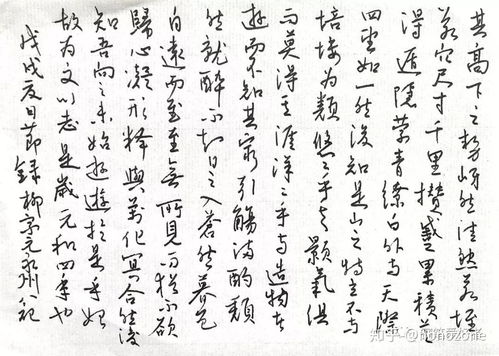 其高下之勢岈然洼然若垤
若穴尺寸千里攢蹙累積莫
得遁隱縈青繚白外与天際
四望如一然後知是山之特立不与
培塿為類悠々乎与顥氣俱
而莫得其涯洋々乎与造物者
遊而不知其窮引觴滿酌頹
然就醉不知日之入蒼然暮色
自遠而至至無所見而猶不欲
歸心凝形釋與萬化冥合然後
知吾向之未始遊遊於是乎始
故為文以志是歲元和四年也
戊戌夏日節錄柳宗元永州八記
知乎